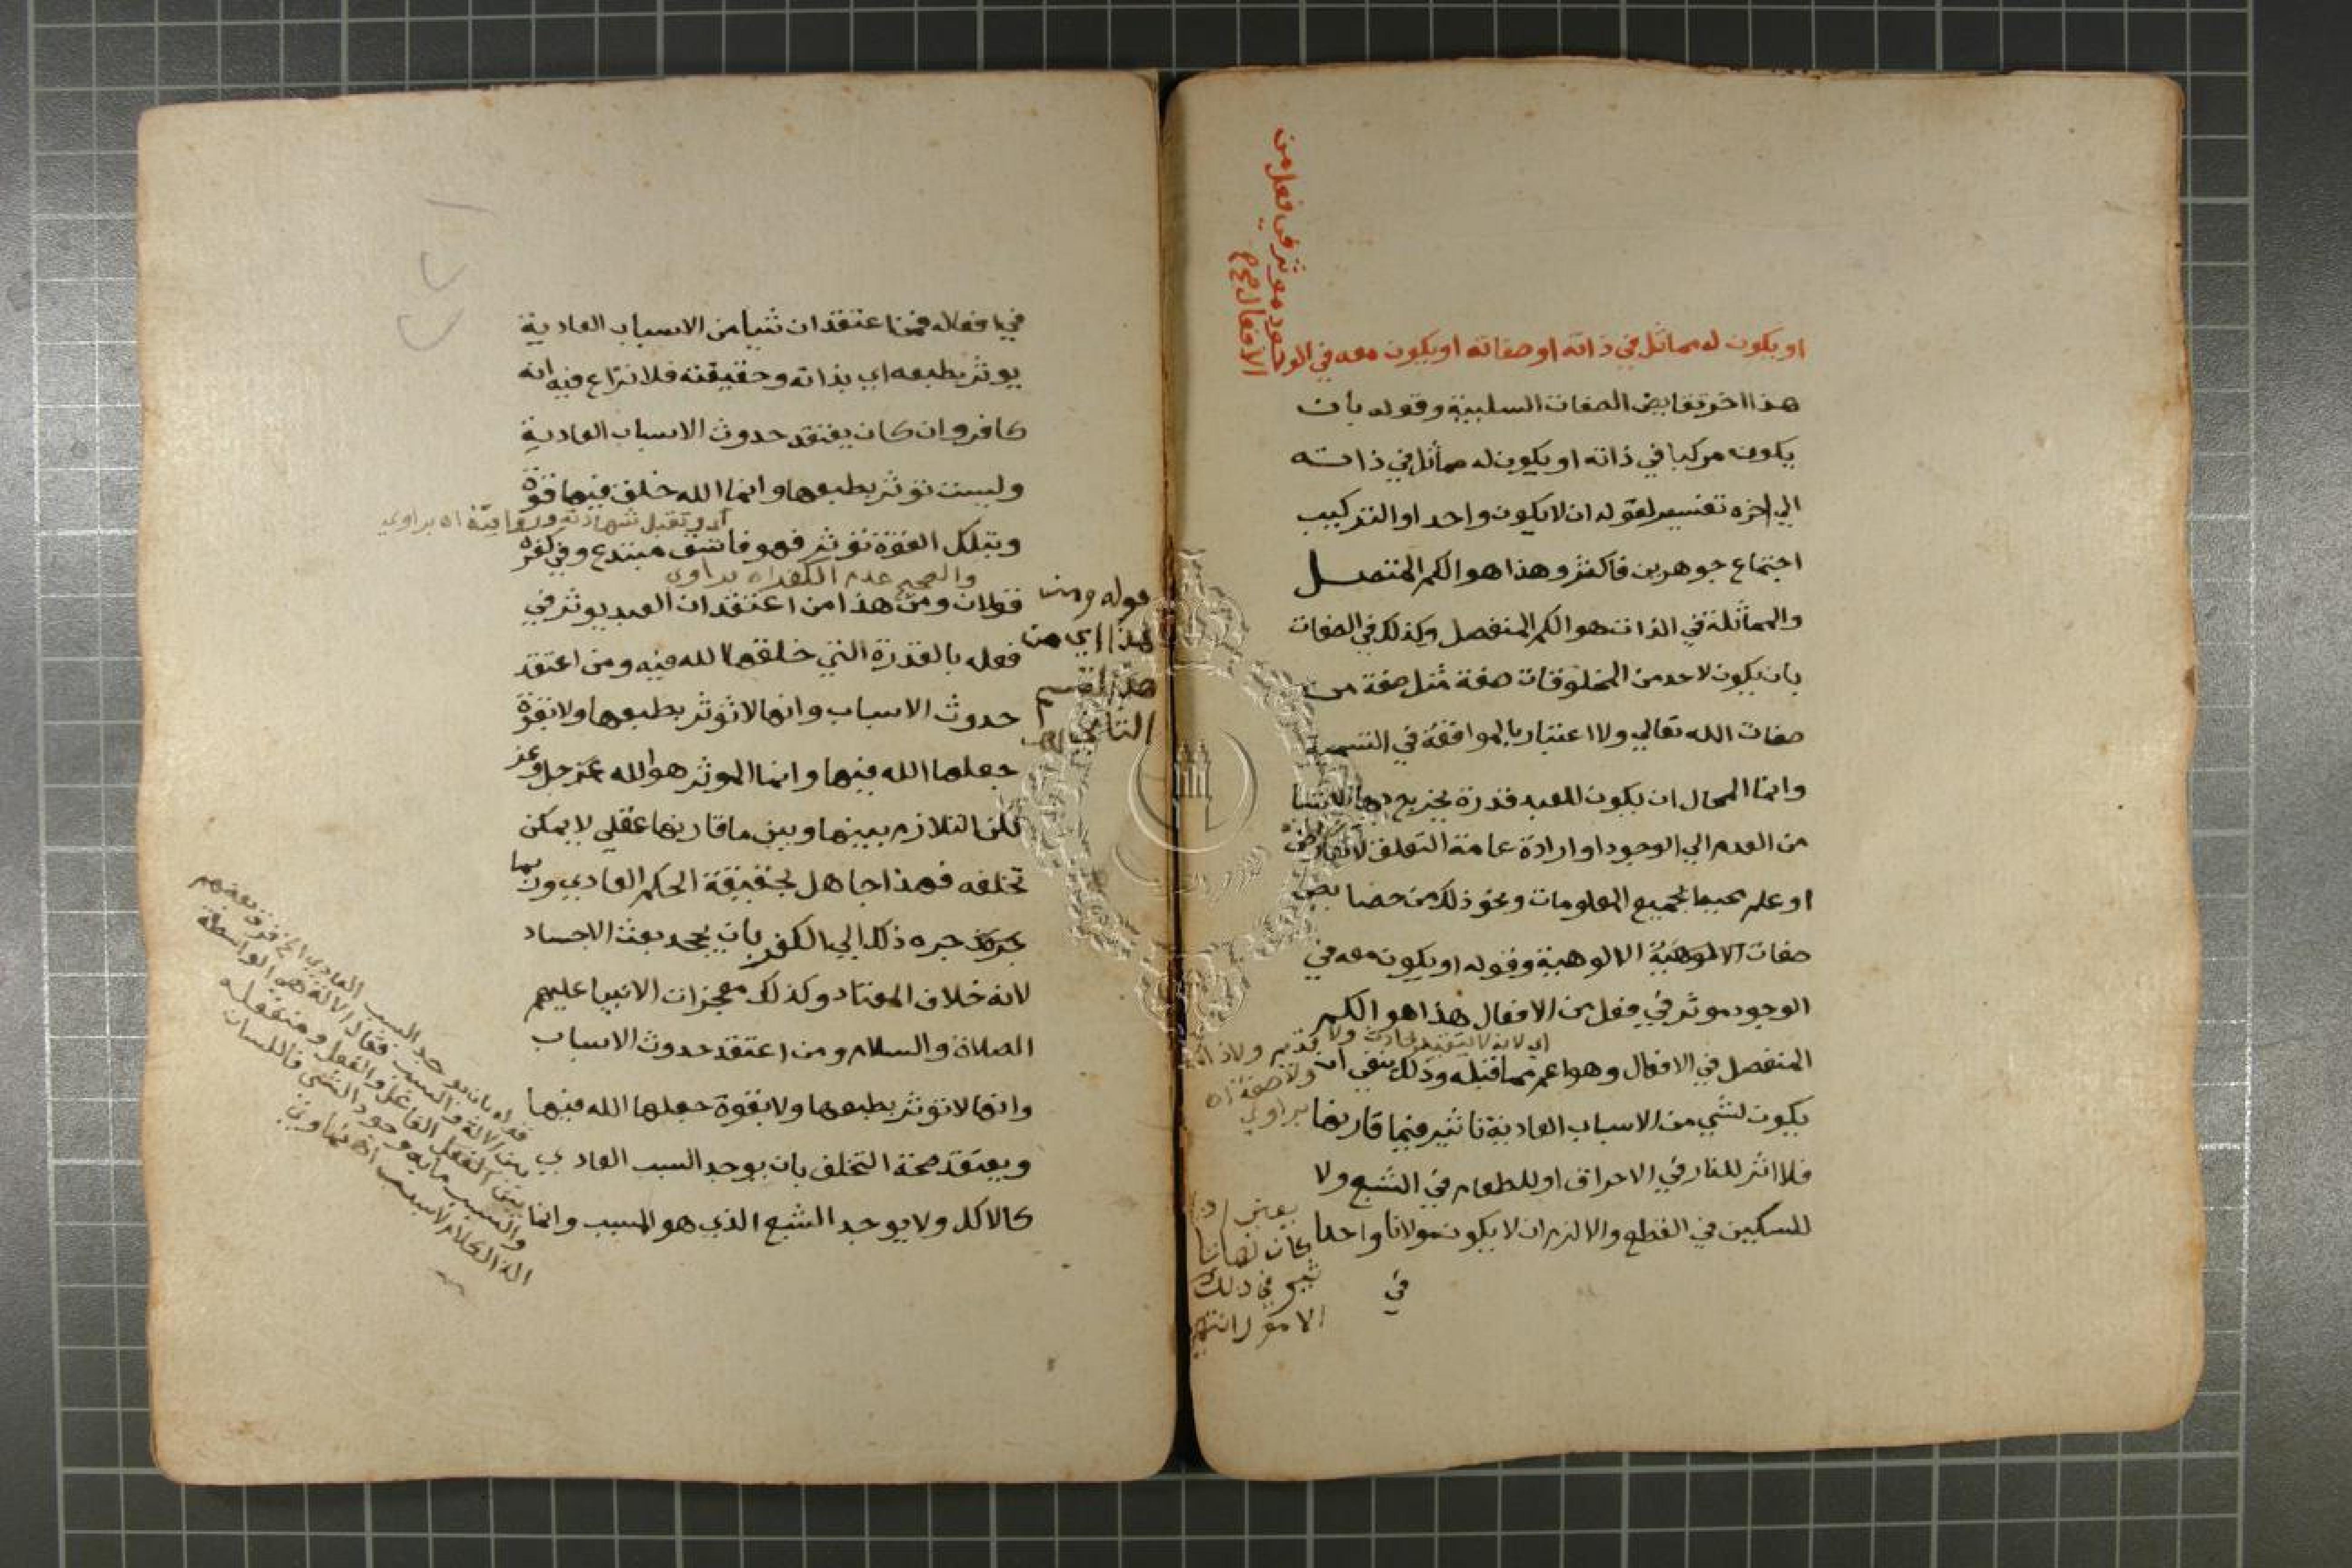 او يكون له مماثل في ذاته او صفاته او يكون معه في الو
جود موثر في فعل من
الافعال
هذا اخر نقايض الصفات السلبية وقوله بان
يكون مركبا في ذاته او يكون له مماثل في ذاته
الي اخره تفسير لقوله ان لا يكون واحدا والتركيب
اجتماع جوهرين فاكثر وهذا هو الكم المتصل
والمماثلة في الذات هو الكم المنفصل وكذلك في الصفات
بان يكون لاحد من المخلوقات صفة مثل صفة من
صفات الله تعالي ولا اعتبار بالموافقة في التسمية
وانما المحال ان يكون للعبد قدرة يخترع بها
من العدم الي الوجود او ارادة عامة التعلق
او علم محيط بجميع المعلومات ونحو ذلك من خصايص
صفات الالوهية الالوهية وقوله او يكون معه في
الوجود موثر في فعل من الافعال هذا هو الكم
المنفصل في الافعال وهو اعم مما قبله وذلك ينفي ان
يكون لشي من الاسباب العادية تاثير فيما قارنها
فلا اثر للنار في الاحراق او للطعام في الشبع ولا
للسكين في القطع والا لزم ان لا يكون مولانا واحدا
في
في افعاله فمن اعتقد ان شيا من الاسباب العادية
يوثر بطبعه اي بذاته وحقيقته فلا نزاع فيه انه
كافر وان كان يعتقد حدوث الاسباب العادية
وليست توثر بطبعها وانما الله خلق فيها قوة
وبتلك القوة توثر فهو فاسق مبتدع وفي كفره
والصحيح عدم الكفر اه براوي
قولان ومن هذا من اعتقد ان العبد يوثر في
فعله بالقدرة التي خلقها الله فيه ومن اعتقد
حدوث الاسباب وانها لا توثر بطبعها ولا بقوة
جعلها الله فيها وانما الموثر هو الله عز جل وعز
لكن التلازم بينها وبين ما قارنها عقلي لا يمكن
تخلفه فهذا جاهل بحقيقة الحكم العادي وربما
جره ذلك الي الكفر بان يجحد بعث الاجساد
لانه خلاف المعتاد وكذلك معجزات الانبيا عليهم
الصلاة والسلام ومن اعتقد حدوث الاسباب
وانها لا توثر بطبعها ولا بقوة جعلها الله فيها
ويعتقد صحة التخلف بان يوجد السبب العادي
كالاكل ولا يوجد الشبع الذي هو المسبب وانما
قوله ومن
هذا اي من
هذا القسم
الثاني